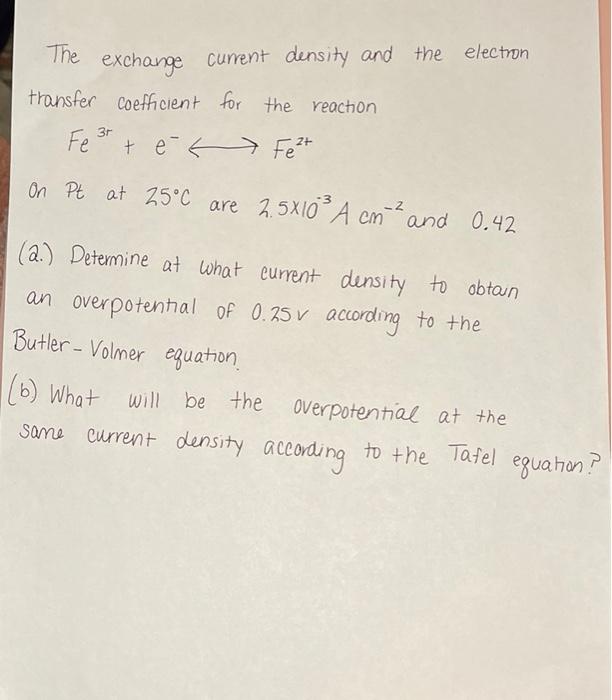 The exchange current density and the electron
transfer coefficient for the reaction
Fe³⁺ + e⁻ ⟷ Fe²⁺
On Pt at 25°C are 2.5x10⁻³ A cm⁻² and 0.42
(a.) Determine at what current density to obtain
an overpotential of 0.25v according to the
Butler-Volmer equation.
(b) What will be the overpotential at the
same current density according to the Tafel equation?